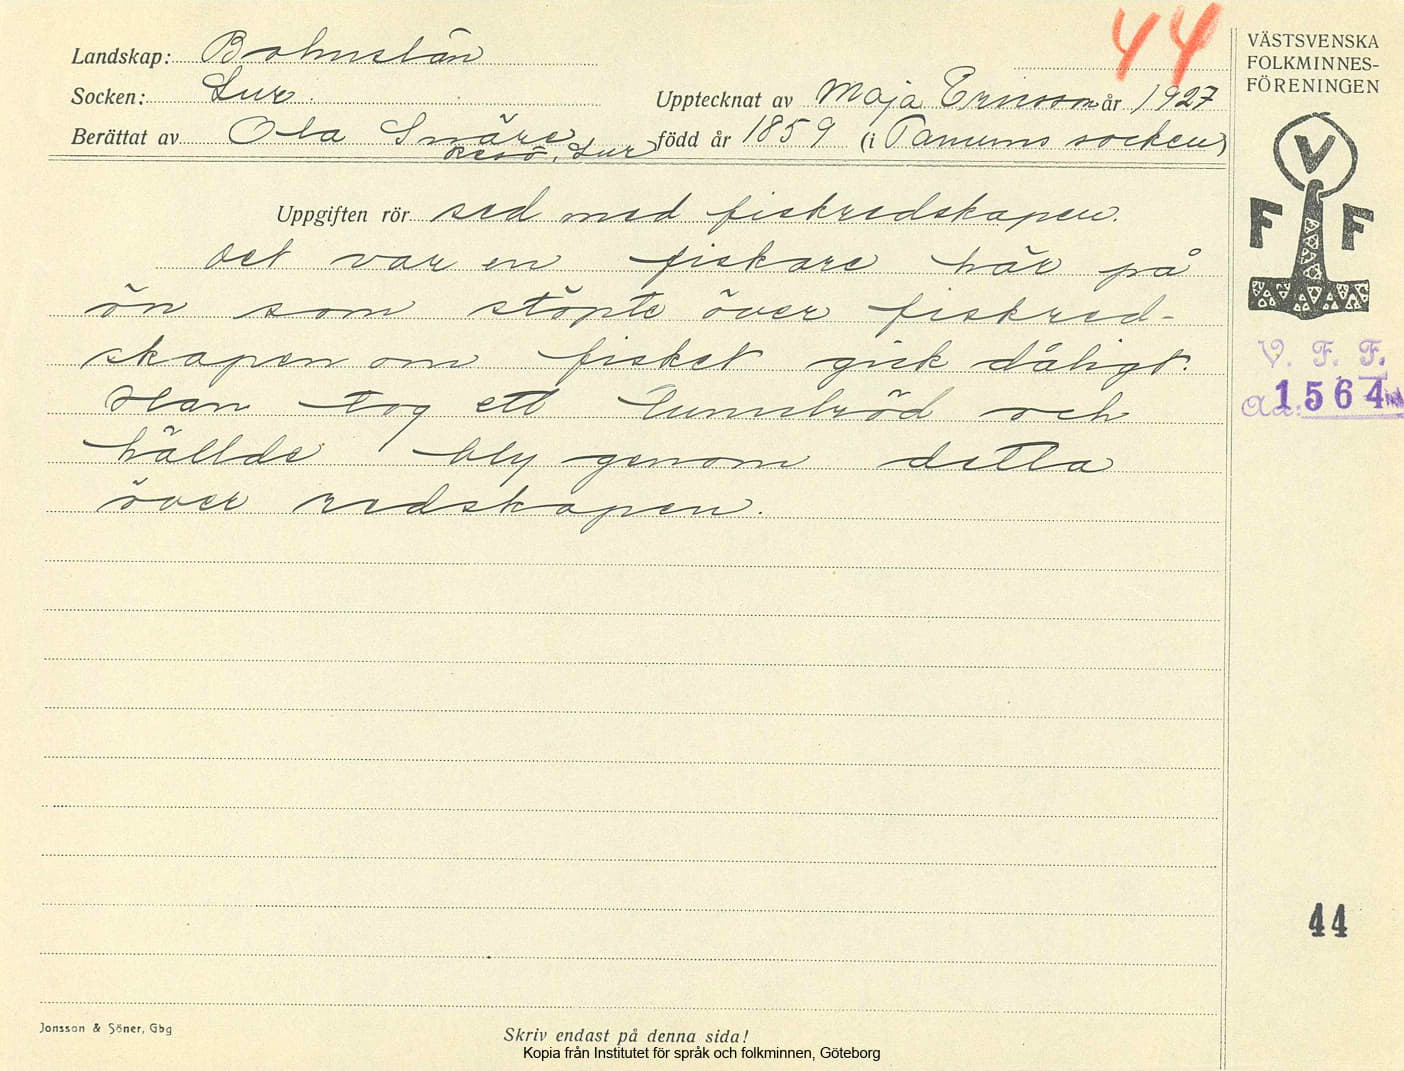 44
Landskap: Bohuslän
Socken: Lur.
Upptecknat av Maja Ericsson år 1927
Berättat av Ola Snäre född år 1859 (i Tanums socken)
Resö, Lur
Uppgiften rör sed med fiskredskapen.
Det var en fiskare här på
ön som stöpte över fiskred-
skapen om fisket gick dåligt.
Han tog ett tunnbröd och
hällde bly genom detta
över redskapen.
VÄSTSVENSKA
FOLKMINNES-
FÖRENINGEN
V
F F
V. F. F.
1564
44
Jonsson & Söner, Gbg
Skriv endast på denna sida!
Kopia från Institutet för språk och folkminnen, Göteborg